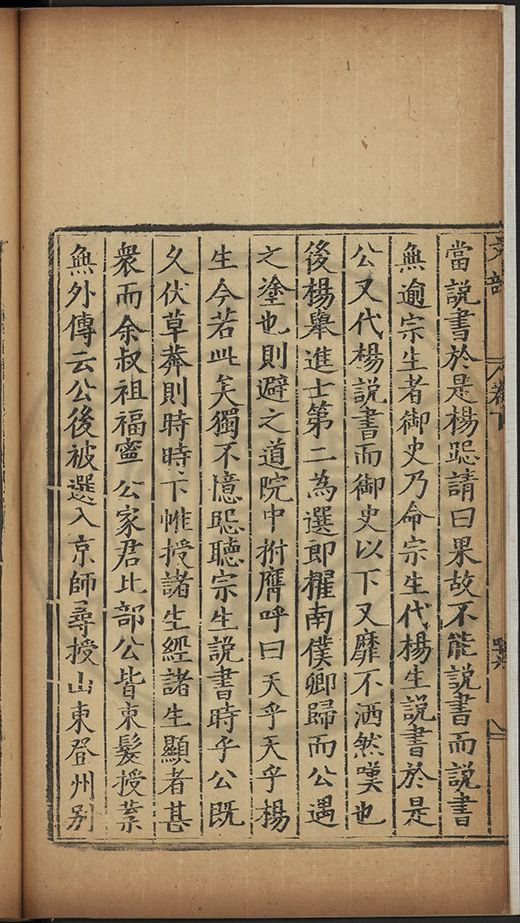 當說書於是楊跽請曰果故不能說書而說書
無逾宗生者御史乃命宗生代楊生說書於是
公又代楊說書而御史以下又靡不洒然嘆也
後楊舉進士第二為選郎擢南僕卿歸而公遇
之塗也則避之道院中拊膺呼曰天乎天乎楊
生今若此矣獨不憶跽聽宗生說書時乎公既
久伏草莽則時時下帷授諸生經諸生顯者甚
衆而余叔祖福寧公家君比部公皆束髮授業
無外傳云公後被選入京師尋授山東登州别